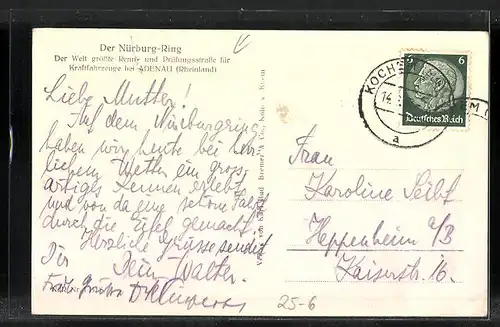 Der Nürburg-Ring
Der Welt größte Renn- und Prüfungsstraße für
Kraftfahrzeuge bei ADENAU (Rheinland)
Liebe Mutter!
Auf dem Nürburgring
haben wir heute bei herr-
lichem Wetter ein gross-
artiges Rennen erlebt
und von da eine schöne Fahrt
durch die Eifel gemacht.
Herzliche Grüsse sendet
Dir Dein Walter.
6 6
Deutsches Reich
KOCHEM
14.
a
Frau
Karoline Seibt
Heppenheim a/B
Kaiserstr. 16.
25-6